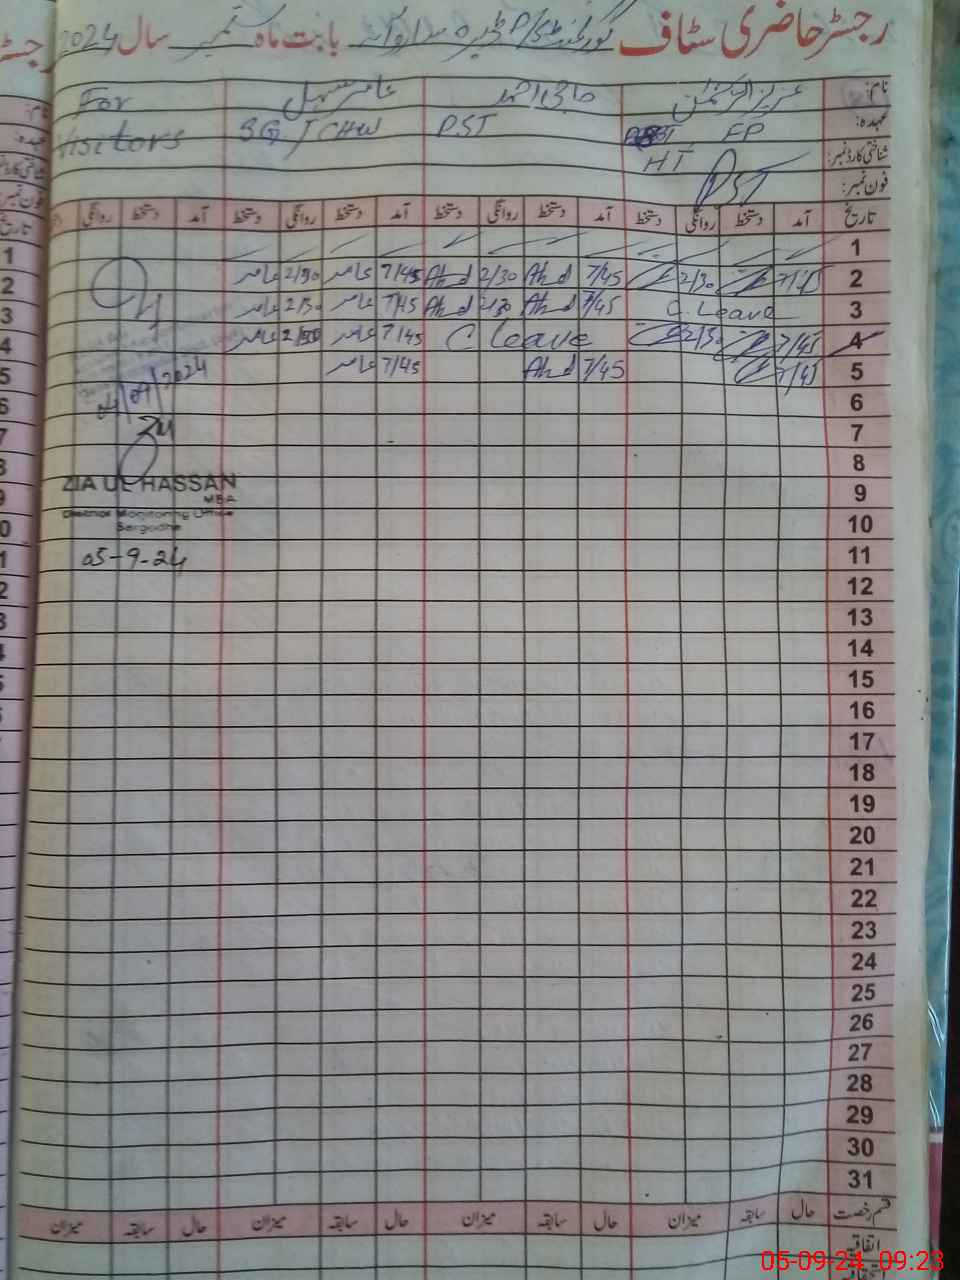 رجسٹر حاضری سٹاف گورنمنٹ P/S ڈیرہ بابت ماہ ستمبر سال 2024
نام: عزیز الرحمٰن حاجی احمد عامر سہیل For
عہدہ: EP PST SG J CHW Visitors
شناختی کارڈ نمبر: HT
فون نمبر: PST
تاریخ آمد دستخط روانگی دستخط آمد دستخط روانگی دستخط آمد دستخط روانگی دستخط آمد دستخط روانگی
1
2 7/45 2/30 7/45 Ahd 2/30 Ahd 7/45 عامر 2/30 عامر
3 C. Leave 7/45 Ahd 2/30 Ahd 7/45 عامر 2/30 عامر
4 7/45 2/30 C Leave 7/45 عامر 2/30 عامر
5 7/45 7/45 Ahd 7/45 عامر
04/09/2024
6
7
8
9
ZIA UL HASSAN
MBA
District Monitoring Officer
Sargodha
10
11
05-9-24
12
13
14
15
16
17
18
19
20
21
22
23
24
25
26
27
28
29
30
31
قسم رخصت حال سابقہ میزان حال سابقہ میزان حال سابقہ میزان حال سابقہ میزان
اتفاقیہ
05-09-24 09:23